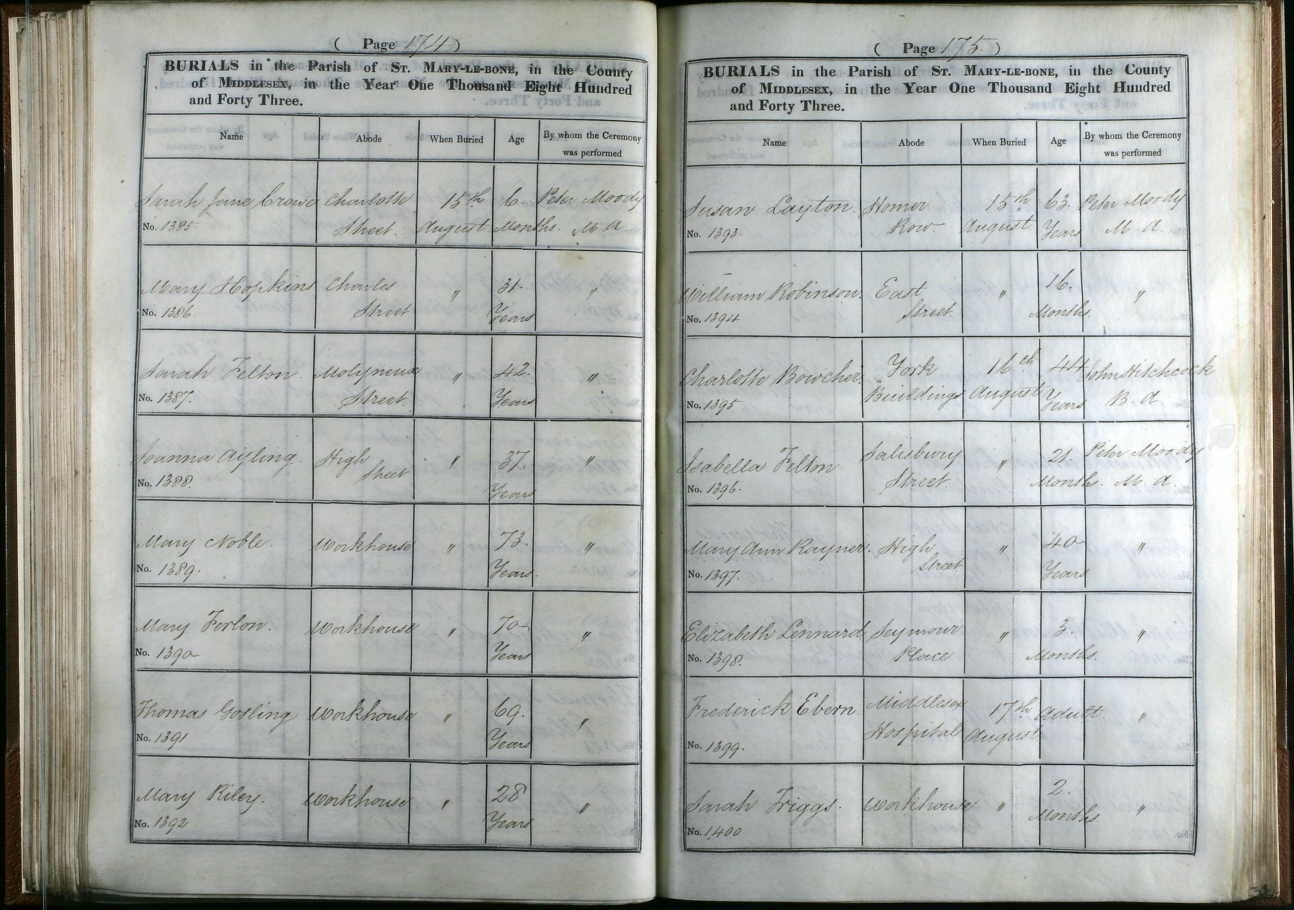 ( Page 174 )
BURIALS in the Parish of ST. MARY-LE-BONE, in the County
of MIDDLESEX, in the Year One Thousand Eight Hundred
and Forty Three.
Name Abode When Buried Age By whom the Ceremony
was performed
Sarah Jane Crowe Charlotte 15th 6 Peter Moody
No. 1385 Street. August Months. M A
Mary Hopkins Charles " 31. "
No. 1386 Street Years
Sarah Felton Molyneux " 42 "
No. 1387. Street. Years
Joanna Ayling. High " 37. "
No. 1388. Street Years
Mary Noble. Workhouse " 73. "
No. 1389. Years.
Mary Forlon. Workhouse " 70 "
No. 1390 Years
Thomas Gosling Workhouse " 69. "
No. 1391 Years
Mary Riley. Workhouse " 28 "
No. 1392 Years
( Page 175. )
BURIALS in the Parish of ST. MARY-LE-BONE, in the County
of MIDDLESEX, in the Year One Thousand Eight Hundred
and Forty Three.
Name Abode When Buried Age By whom the Ceremony
was performed
Susan Layton. Homer 15th 63. Peter Moody
No. 1393. Row August Years M A
William Robinson. East " 16. "
No. 1394 Street. Months.
Charlotte Bowcher. York 16th 44 John Hitchcock
No. 1395 Buildings August Years B. A
Isabella Felton Salisbury " 21 Peter Moody
No. 1396. Street. Months. M A.
Mary Ann Rayner. High " 40 "
No. 1397. Street Years
Elizabeth Lennard Seymour " 3. "
No. 1398. Place Months.
Frederick Ebern Middlesex 17th Adult "
No. 1399. Hospital August
Sarah Friggs. Workhouse " 2. "
No. 1400 Months